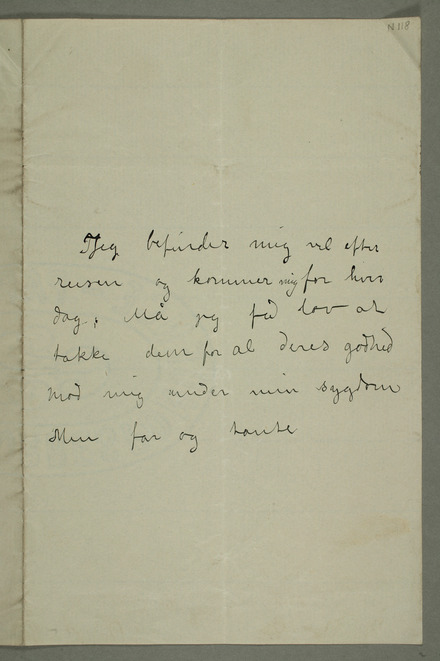 N.118
Jeg befinder mig vel efter
reisen og kommer mig for hver
dag. Må jeg få lov at
takke dem for al deres godhed
mod mig under min sygdom
Men far og tante